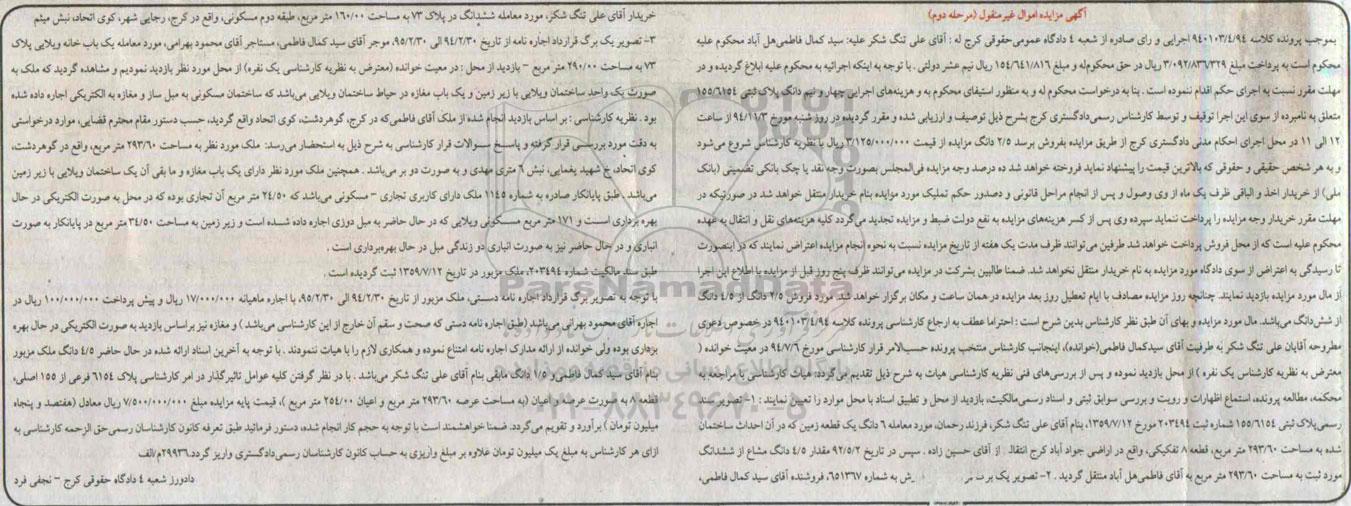 آگهی مزایده اموال غیرمنقول (مرحله دوم)
بموجب پرونده کلاسه ۹۴۰۱۰۳/۴/۹۴ اجرایی و رای صادره از شعبه ۴ دادگاه عمومی‌حقوقی کرج له : آقای علی تنگ شکر علیه: سید کمال فاطمی‌هل آباد محکوم علیه
محکوم است به پرداخت مبلغ ۳/۰۹۲/۸۳۶/۳۲۹ ریال در حق محکوم‌له و مبلغ ۱۵۴/۶۴۱/۸۱۶ ریال نیم عشر دولتی . با توجه به اینکه اجرائیه به محکوم علیه ابلاغ گردیده و در
مهلت مقرر نسبت به اجرای حکم اقدام ننموده است . بنا به درخواست محکوم له و به منظور استیفای محکوم به و هزینه‌های اجرایی چهار و نیم دانگ پلاک ثبتی ۱۵۵/۶۱۵۴
متعلق به نامبرده از سوی این اجرا توقیف و توسط کارشناس رسمی‌دادگستری کرج بشرح ذیل توصیف و ارزیابی شده و مقرر گردیده در روز شنبه مورخ ۹۴/۱۱/۳ از ساعت
۱۱ الی ۱۲ در محل اجرای احکام مدنی دادگستری کرج از طریق مزایده بفروش برسد ۲/۵ دانگ مزایده از قیمت ۳/۱۲۵/۰۰۰/۰۰۰ ریال با نظریه کارشناس شروع می‌شود
و به هر شخص حقیقی و حقوقی که بالاترین قیمت را پیشنهاد نماید فروخته خواهد شد ده درصد وجه مزایده فی‌المجلس بصورت وجه نقد یا چک بانکی تضمینی (بانک
ملی) از خریدار اخذ و الباقی ظرف یک ماه از وی وصول و پس از انجام مراحل قانونی و دصدور حکم تملیک مورد مزایده بنام خریدار منتقل خواهد شد در صورتیکه در
مهلت مقرر خریدار وجه مزایده را پرداخت ننماید سپرده وی پس از کسر هزینه‌های مزایده به نفع دولت ضبط و مزایده تجدید می‌گردد کلیه هزینه‌های نقل و انتقال به عهده
محکوم علیه است که از محل فروش پرداخت خواهد شد طرفین می‌توانند ظرف مدت یک هفته از تاریخ مزایده نسبت به نحوه انجام مزایده اعتراض نمایند که در اینصورت
تا رسیدگی به اعتراض از سوی دادگاه مورد مزایده به نام خریدار منتقل نخواهد شد. ضمنا طالبین بشرکت در مزایده می‌توانند ظرف پنج روز قبل از مزایده با اطلاع این اجرا
از مال مورد مزایده بازدید نمایند. چنانچه روز مزایده مصادف با ایام تعطیل روز بعد مزایده در همان ساعت و مکان برگزار خواهد شد. مورد فروش ۲/۵ دانگ از ۴/۵ دانگ
از شش‌دانگ می‌باشد. مال مورد مزایده و بهای آن طبق نظر کارشناس بدین شرح است : احتراما عطف به ارجاع کارشناسی پرونده کلاسه ۹۴۰۱۰۳/۴/۹۴ در خصوص دعوی
مطروحه آقایان علی تنگ شکر به طرفیت آقای سیدکمال فاطمی(خوانده)، اینجانب کارشناس منتخب پرونده حسب‌الامر قرار کارشناسی مورخ ۹۴/۷/۶ در معیت خوانده (
معترض به نظریه کارشناس یک نفره ) از محل بازدید نموده و پس از بررسی‌های فنی نظریه کارشناسی هیات به شرح ذیل تقدیم می‌گردد: هیات کارشناسی با مراجعه به
محکمه، مطالعه پرونده، استماع اظهارات و رویت و بررسی سوابق ثبتی و اسناد رسمی‌مالکیت، بازدید از محل و تطبیق اسناد با محل موارد را تعیین نمایند : ۱- تصویر سند
رسمی‌پلاک ثبتی ۱۵۵/۶۱۵۴ شماره ثبت ۲۰۳۴۹۴ مورخ ۱۳۵۹/۷/۱۲، بنام آقای علی تنگ شکر، فرزند رحمان، مورد معامله ۶ دانگ یک قطعه زمین که در آن احداث ساختمان
شده به مساحت ۲۹۳/۶۰ متر مربع، قطعه ۸ تفکیکی، واقع در اراضی جواد آباد کرج انتقال از آقای حسین زاده . سپس در تاریخ ۹۲/۵/۲ مقدار ۴/۵ دانگ مشاع از ششدانگ
مورد ثبت به مساحت ۲۹۳/۶۰ متر مربع به آقای فاطمی‌هل آباد منتقل گردید . ۲- تصویر یک برگ ش به شماره ۶۵۱۳۶۷، فروشنده آقای سید کمال فاطمی،
خریدار آقای علی تنگ شکر، مورد معامله ششدانگ در پلاک ۷۳ به مساحت ۱۶۰/۰۰ متر مربع، طبقه دوم مسکونی، واقع در کرج، رجایی شهر، کوی اتحاد، نبش میثم
۳- تصویر یک برگ قرارداد اجاره نامه از تاریخ ۹۴/۲/۳۰ الی ۹۵/۲/۳۰، موجر آقای سید کمال فاطمی، مستاجر آقای محمود بهرامی، مورد معامله یک باب خانه ویلایی پلاک
۷۳ به مساحت ۲۹۰/۰۰ متر مربع - بازدید از محل : در معیت خوانده (معترض به نظریه کارشناسی یک نفره) از محل مورد نظر بازدید نمودیم و مشاهده گردید که ملک به
صورت یک واحد ساختمان ویلایی با زیر زمین و یک باب مغازه در حیاط ساختمان ویلایی می‌باشد که ساختمان مسکونی به مبل ساز و مغازه به الکتریکی اجاره داده شده
بود . نظریه کارشناسی : بر اساس بازدید انجام شده از ملک آقای فاطمی‌که در کرج، گوهردشت، کوی اتحاد واقع گردید، حسب دستور مقام محترم قضایی، موارد درخواستی
به دقت مورد بررسی قرار گرفته و پاسخ سوالات قرار کارشناسی به شرح ذیل به استحضار می‌رسد: ملک مورد نظر به مساحت ۲۹۳/۶۰ متر مربع، واقع در گوهردشت،
کوی اتحاد، خ شهید یغمایی، نبش ۶ متری مهدی و به صورت دو بر می‌باشد . همچنین ملک مورد نظر دارای یک باب مغازه و ما بقی آن یک ساختمان ویلایی با زیر زمین
می‌باشد. طبق پایانکار صادره به شماره ۱۱۴۵ ملک دارای کاربری تجاری - مسکونی می‌باشد که ۲۴/۵۰ متر مربع آن تجاری بوده که در محل به صورت الکتریکی در حال
بهره برداری است و ۱۷۱ متر مربع مسکونی ویلایی که در حال حاضر به مبل دوزی اجاره داده شده است و زیر زمین به مساحت ۳۴/۵۰ متر مربع در پایانکار به صورت
انباری و در حال حاضر نیز به صورت انباری دو زندگی مبل در حال بهره‌برداری است .
طبق سند مالکیت شماره ۲۰۳۴۹۴، ملک مزبور در تاریخ ۱۳۵۹/۷/۱۲ ثبت گردیده است .
با توجه به تصویر برگ قرارداد اجاره نامه دستی، ملک مزبور از تاریخ ۹۴/۲/۳۰ الی ۹۵/۲/۳۰، با اجاره ماهیانه ۱۷/۰۰۰/۰۰۰ ریال و پیش پرداخت ۱۰۰/۰۰۰/۰۰۰ ریال در
اجاره آقای محمود بهرانی می‌باشد (طبق اجاره نامه دستی که صحت و سقم آن خارج از این کارشناسی می‌باشد ) و مغازه نیز براساس بازدید به صورت الکتریکی در حال بهره
برداری بوده ولی خوانده از ارائه مدارک اجاره نامه امتناع نموده و همکاری لازم را با هیات ننمودند . با توجه به آخرین اسناد ارائه شده در حال حاضر ۴/۵ دانگ ملک مزبور
بنام آقای سید کمال فاطمی‌و ۱/۵ دانگ مابقی بنام آقای علی تنگ شکر می‌باشد . با در نظر گرفتن کلیه عوامل تاثیرگذار در امر کارشناسی پلاک ۶۱۵۴ فرعی از ۱۵۵ اصلی،
قطعه ۸ به صورت عرصه و اعیان (به مساحت عرصه ۲۹۳/۶۰ متر مربع و اعیان ۲۵۴/۰۰ متر مربع )، قیمت پایه مزایده مبلغ ۷/۵۰۰/۰۰۰/۰۰۰ ریال معادل (هفتصد و پنجاه
میلیون تومان ) برآورد و تقویم می‌گردد. ضمنا خواهشمند است با توجه به حجم کار انجام شده، دستور فرمائید طبق تعرفه کانون کارشناسان رسمی‌حق الزحمه کارشناسی به
ازای هر کارشناس به مبلغ یک میلیون تومان علاوه بر مبلغ واریزی به حساب کانون کارشناسان رسمی‌دادگستری واریز گردد.۲۹۹۳۶م/الف
دادورز شعبه ۴ دادگاه حقوقی کرج - نجفی فرد
ParsNamadData
۰۲۱-۸۸۳۴۹۶۷۰-۵